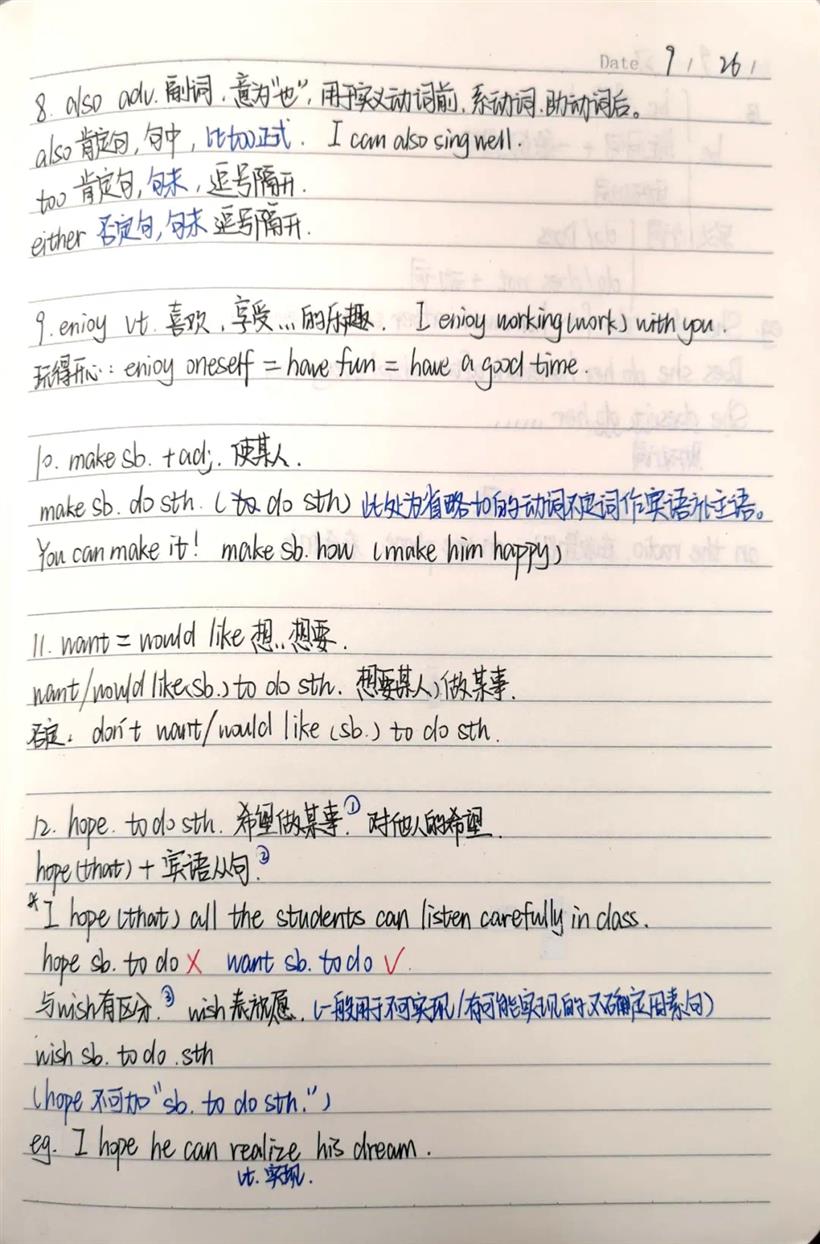 Date 9 / 26 /
8. also adv. 副词. 意为"也", 用于实义动词前, 系动词. 助动词后。
also 肯定句, 句中, 比too正式. I can also sing well.
too 肯定句, 句末, 逗号隔开.
either 否定句, 句末 逗号隔开.
9. enjoy vt. 喜欢, 享受...的乐趣. I enjoy working (work) with you.
玩得开心: enjoy oneself = have fun = have a good time.
10. make sb. + adj. 使某人.
make sb. do sth. (to do sth) 此处为省略to的动词不定词作宾语补主语。
You can make it! make sb. how (make him happy)
11. want = would like 想.. 想要.
want/would like (sb.) to do sth. 想要(某人)做某事.
否定: don't want/would like (sb.) to do sth.
12. hope. to do sth. 希望做某事.① 对他人的希望
hope (that) + 宾语从句.②
* I hope (that) all the students can listen carefully in class.
hope sb. to do × want sb. to do √.
与wish有区分.③ wish表祝愿. (一般用于不可实现/有可能实现的不确定因素句)
wish sb. to do .sth
(hope 不可加"sb. to do sth.")
eg. I hope he can realize his dream.
vt. 实现.